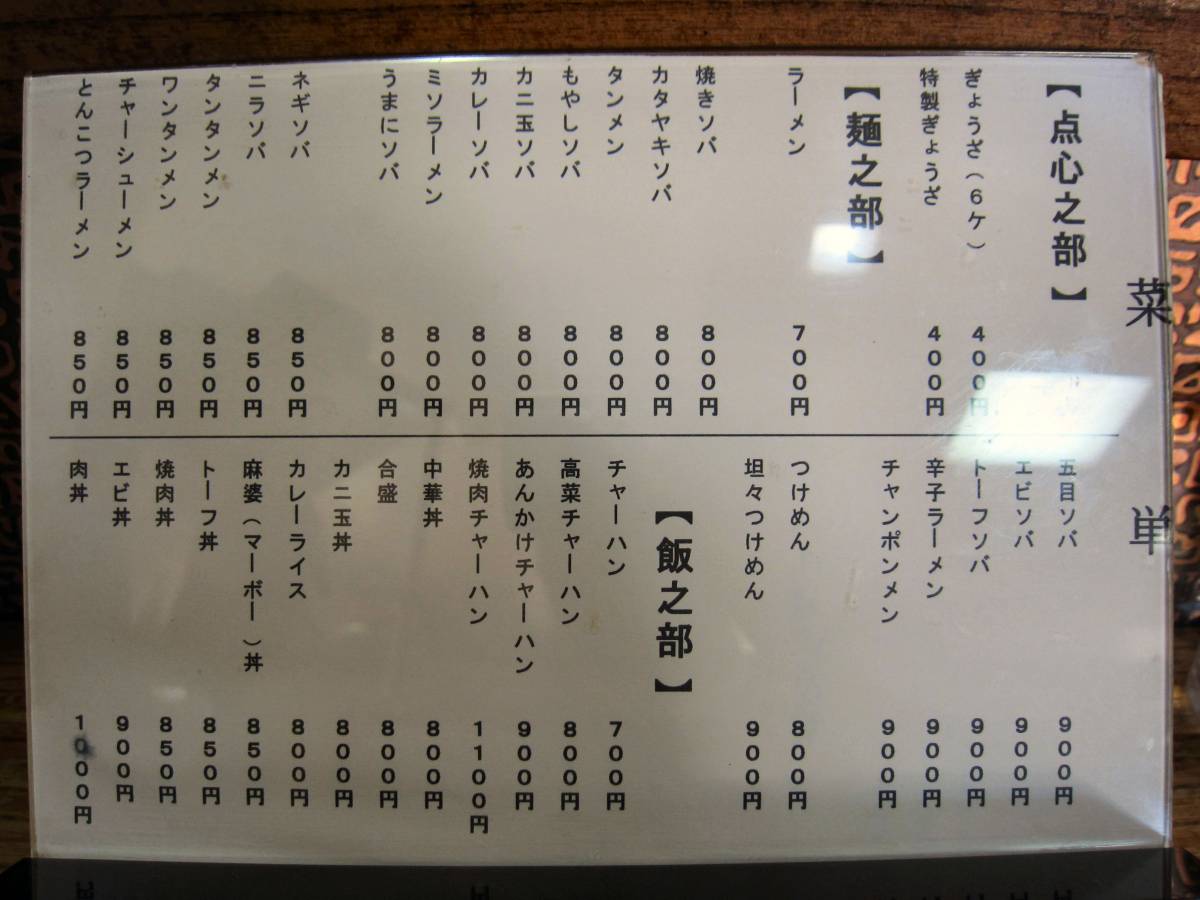 菜単
【点心之部】
ぎょうざ（6ケ） 400円
特製ぎょうざ 400円
【麺之部】
ラーメン 700円
焼きソバ 800円
カタヤキソバ 800円
タンメン 800円
もやしソバ 800円
カニ玉ソバ 800円
カレーソバ 800円
ミソラーメン 800円
うまにソバ 800円
ネギソバ 850円
ニラソバ 850円
タンタンメン 850円
ワンタンメン 850円
チャーシューメン 850円
とんこつラーメン 850円
五目ソバ 900円
エビソバ 900円
トーフソバ 900円
辛子ラーメン 900円
チャンポンメン 900円
つけめん 800円
坦々つけめん 900円
【飯之部】
チャーハン 700円
高菜チャーハン 800円
あんかけチャーハン 900円
焼肉チャーハン 1100円
中華丼 800円
合盛 800円
カニ玉丼 800円
カレーライス 800円
麻婆（マーボー）丼 850円
トーフ丼 850円
焼肉丼 850円
エビ丼 900円
肉丼 1000円